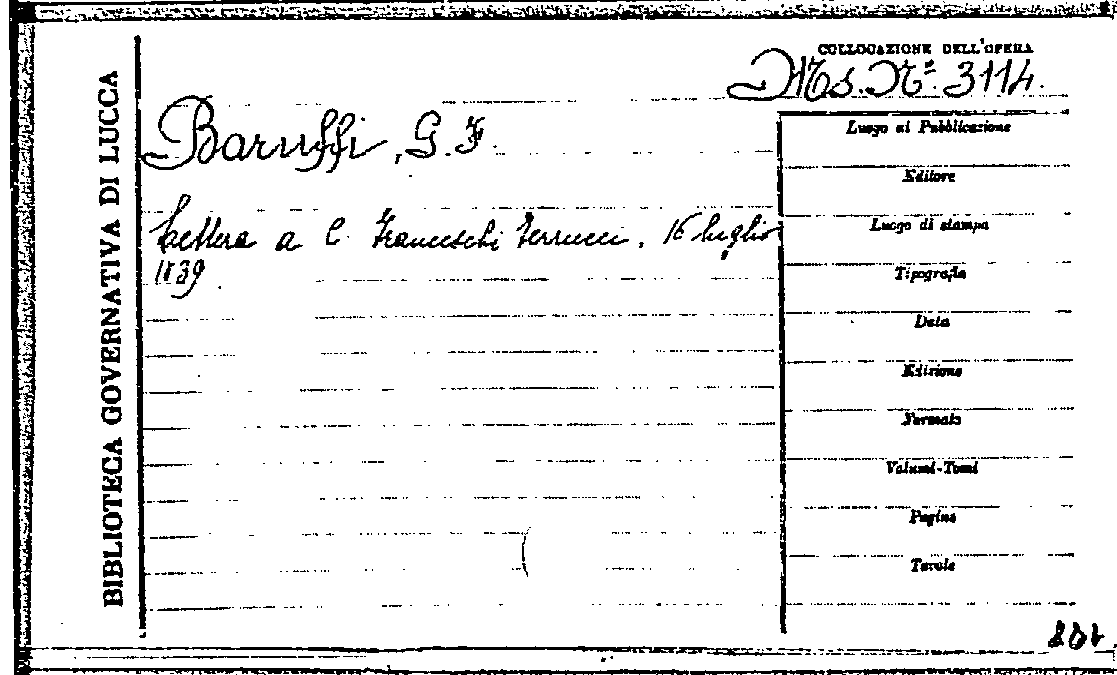 BIBLIOTECA GOVERNATIVA DI LUCCA
COLLOCAZIONE DELL'OPERA
Ms. Nº 3114.
Baruffi, G. F.
Lettera a C. Franceschi Ferrucci. 16 luglio
1839
Luogo di Pubblicazione
Editore
Luogo di stampa
Tipografia
Data
Edizione
Formato
Volumi-Tomi
Pagine
Tavole